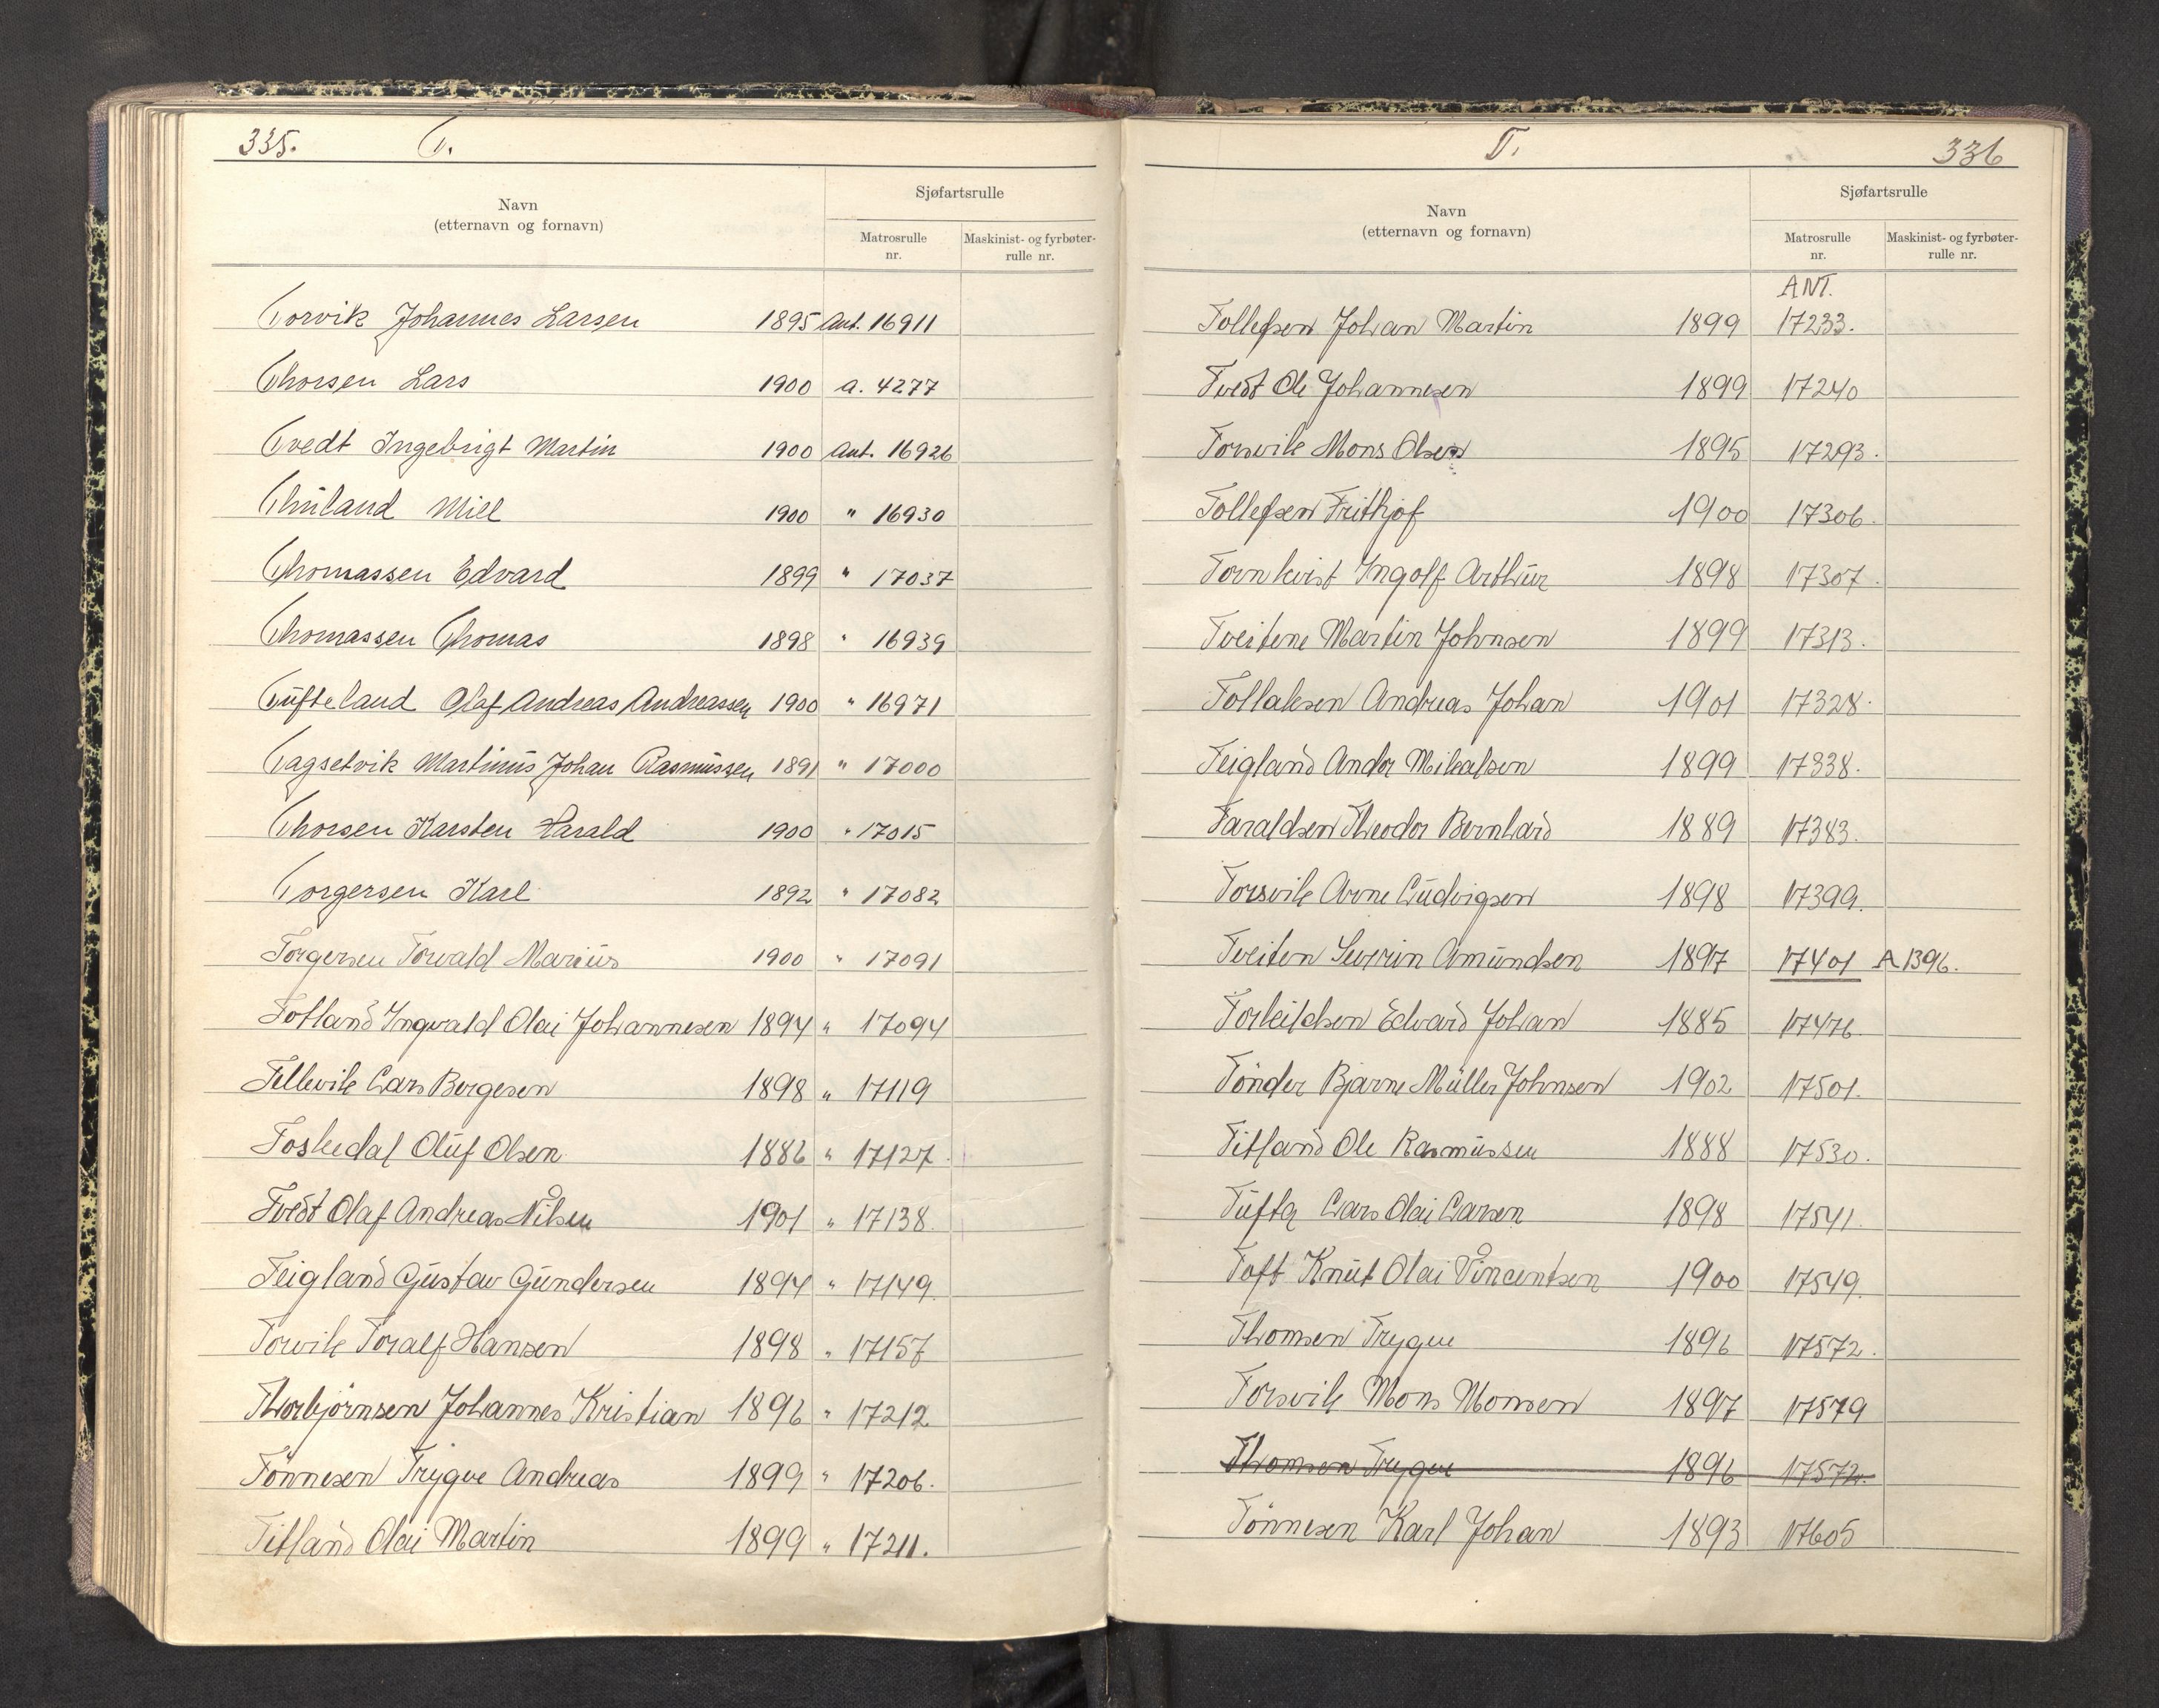 335. T.
Sjøfartsrulle
Navn
(etternavn og fornavn)
Matrosrulle nr. Maskinist- og fyrbøter-rulle nr.
Torvik Johannes Larsen 1895 Ant. 16911
Thorsen Lars 1900 a. 4277
Tvedt Ingebrigt Martin 1900 Ant. 16926
Thuland Miel 1900 " 16930
Thomassen Edvard 1899 " 17037
Thomassen Thomas 1898 " 16939
Tufteland Olaf Andreas Andreassen 1900 " 16971
Tagsetvik Martinus Johan Rasmussen 1891 " 17000
Thorsen Karsten Harald 1900 " 17015
Torgersen Karl 1892 " 17082
Torgersen Torvald Marius 1900 " 17091
Totland Ingvald Olai Johannesen 1894 " 17094
Tellevik Lars Børgesen 1898 " 17119
Toskedal Oluf Olsen 1886 " 17127
Tvedt Olaf Andreas Nilsen 1901 " 17138
Teigland Gustav Gundersen 1894 " 17149.
Torvik Toralf Hansen 1898 " 17157
Thorbjørnsen Johannes Kristian 1896 " 17212
Tønnesen Trygve Andreas 1899 " 17206.
Titland Olai Martin 1899 " 17211.
T. 336
Sjøfartsrulle
Navn
(etternavn og fornavn)
Matrosrulle nr. Maskinist- og fyrbøter-rulle nr.
ANT.
Tollefsen Johan Martin 1899 17233.
Tvedt Ole Johannesen 1899 17240
Torsvik Mons Olsen 1895 17293.
Tollefsen Frithjof 1900 17306.
Tornkvist Ingolf Arthur 1898 17307.
Tveitene Martin Johnsen 1899 17313.
Tollaksen Andreas Johan 1901 17328.
Teigland Andor Mikalsen 1899 17338.
Taraldsen Theodor Bernhard 1889 17383.
Torsvik Arne Ludvigsen 1898 17399.
Tveiten Severin Amundsen 1897 17401 A 1396.
Torkildsen Edvard Johan 1885 17476.
Tønder Bjarne Müller Johnsen 1902 17501.
Titland Ole Rasmussen 1888 17530.
Tufta Lars Olai Larsen 1898 17541.
Toft Knut Olai Vincentsen 1900 17549.
Thomsen Trygve 1896 17572.
Torsvik Mons Monsen 1897 17579
Thomsen Trygve 1896 17572.
Tønnesen Karl Johan 1893 17605